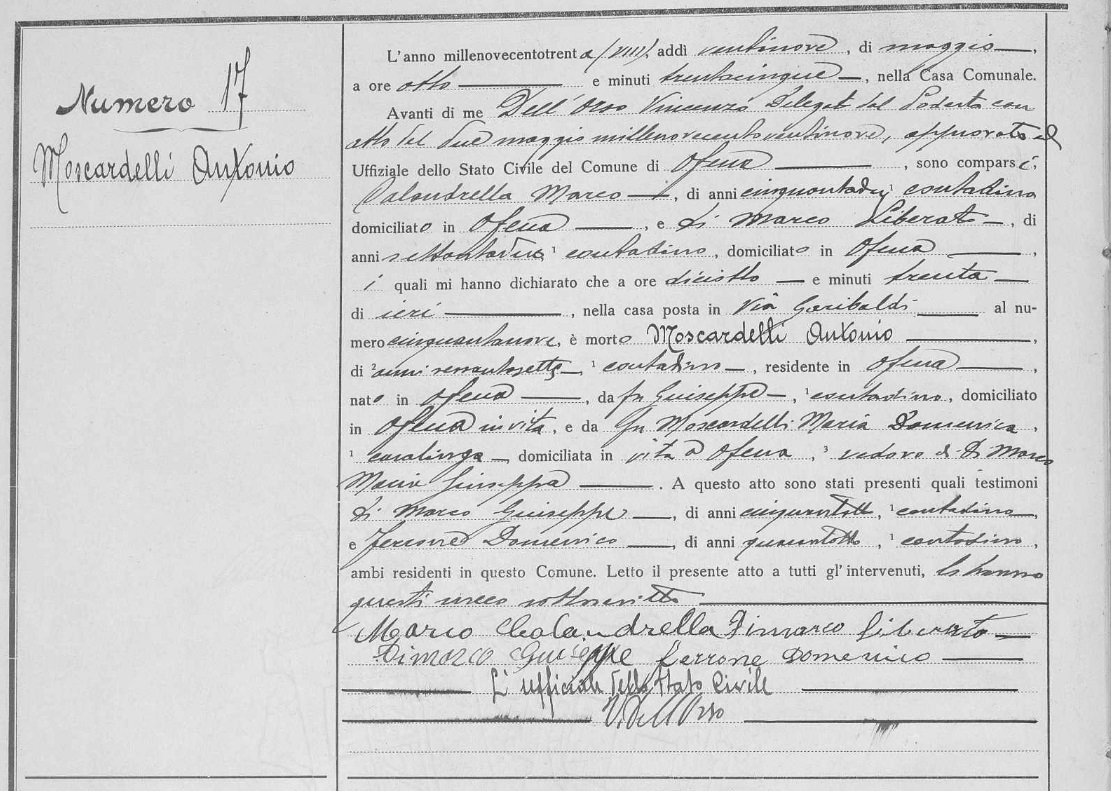 Numero 17
Moscardelli Antonio
L'anno millenovecentotrenta (VIII), addì ventinove, di maggio,
a ore otto e minuti trentacinque, nella Casa Comunale.
Avanti di me Dell'Orso Vincenzo Delegat del Podestà con
atto del due maggio millenovecentoventinove, approvato
Uffiziale dello Stato Civile del Comune di Ofena, sono comparsi
Calandrella Marco, di anni cinquantadue ¹ contadino
domiciliato in Ofena, e Di Marco Liberato, di
anni settantadue ¹ contadino, domiciliato in Ofena,
i quali mi hanno dichiarato che a ore diciotto e minuti trenta
di ieri, nella casa posta in Via Garibaldi al nu-
mero cinquantanove, è morto Moscardelli Antonio,
di ² anni sessantasette, ¹ contadino, residente in Ofena,
nato in Ofena, da fu Giuseppe, ¹ contadino, domiciliato
in Ofena in vita, e da fu Moscardelli Maria Domenica,
¹ casalinga, domiciliata in vita a Ofena, ³ vedovo di Di Marco
Maria Giuseppa. A questo atto sono stati presenti quali testimoni
Di Marco Giuseppe, di anni ¹ contadino,
e Domenico, di anni quarantotto, ¹ contadino,
ambi residenti in questo Comune. Letto il presente atto a tutti gl'intervenuti, lo hanno
questi meco sottoscritto
Marco Calandrella Dimarco Liberato
Dimarco Giuseppe Cerrone Domenico
L'ufficiale dello Stato Civile
V. Dell'Orso